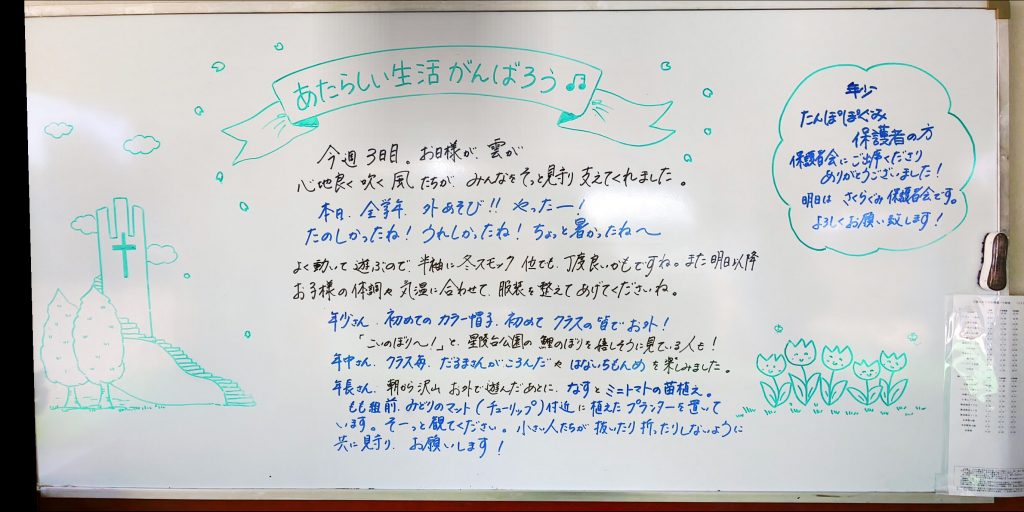 あたらしい生活がんばろう♫
今週3日目。お日様が、雲が
心地良く吹く風たちが、みんなをそっと見守り支えてくれました。
本日、全学年、外あそび!! やったー!
たのしかったね! うれしかったね! ちょっと暑かったね〜
よく動いて遊ぶので、半袖に冬スモック位でも、丁度良いかもですね。また明日以降
お子様の体調や気温に合わせて、服装を整えてあげてくださいね。
年少さん、初めてのカラー帽子、初めてクラスの皆でお外!
「こいのぼり〜!」と、星陵台公園の鯉のぼりを嬉しそうに見ている人も!
年中さん、クラス毎、だるまさんがころんだやはないちもんめを楽しみました。
年長さん、朝から沢山お外で遊んだあとに、なすとミニトマトの苗植え。
もも組前、みどりのマット(チューリップ)付近に植えたプランターを置いて
います。そーっと観てください。小さい人たちが抜いたり折ったりしないように
共に見守り、お願いします!
年少
たんぽぽぐみ
保護者の方
保護者会にご出席くださり
ありがとうございました!
明日はさくらぐみ保護者会です。
よろしくお願い致します!